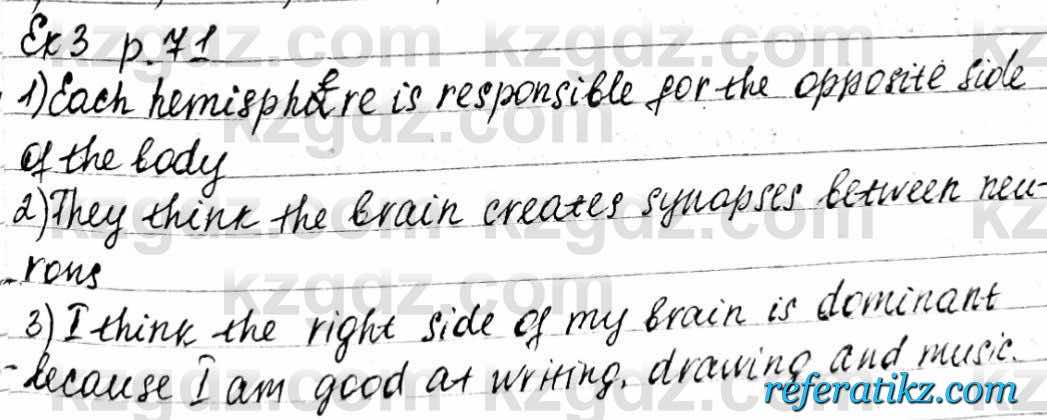 Ex 3 p. 71
1) Each hemisphere is responsible for the opposite side
of the body
2) They think the brain creates synapses between neu-
rons
3) I think the right side of my brain is dominant
because I am good at writing, drawing and music.
referatikz.com
kzgdz.com